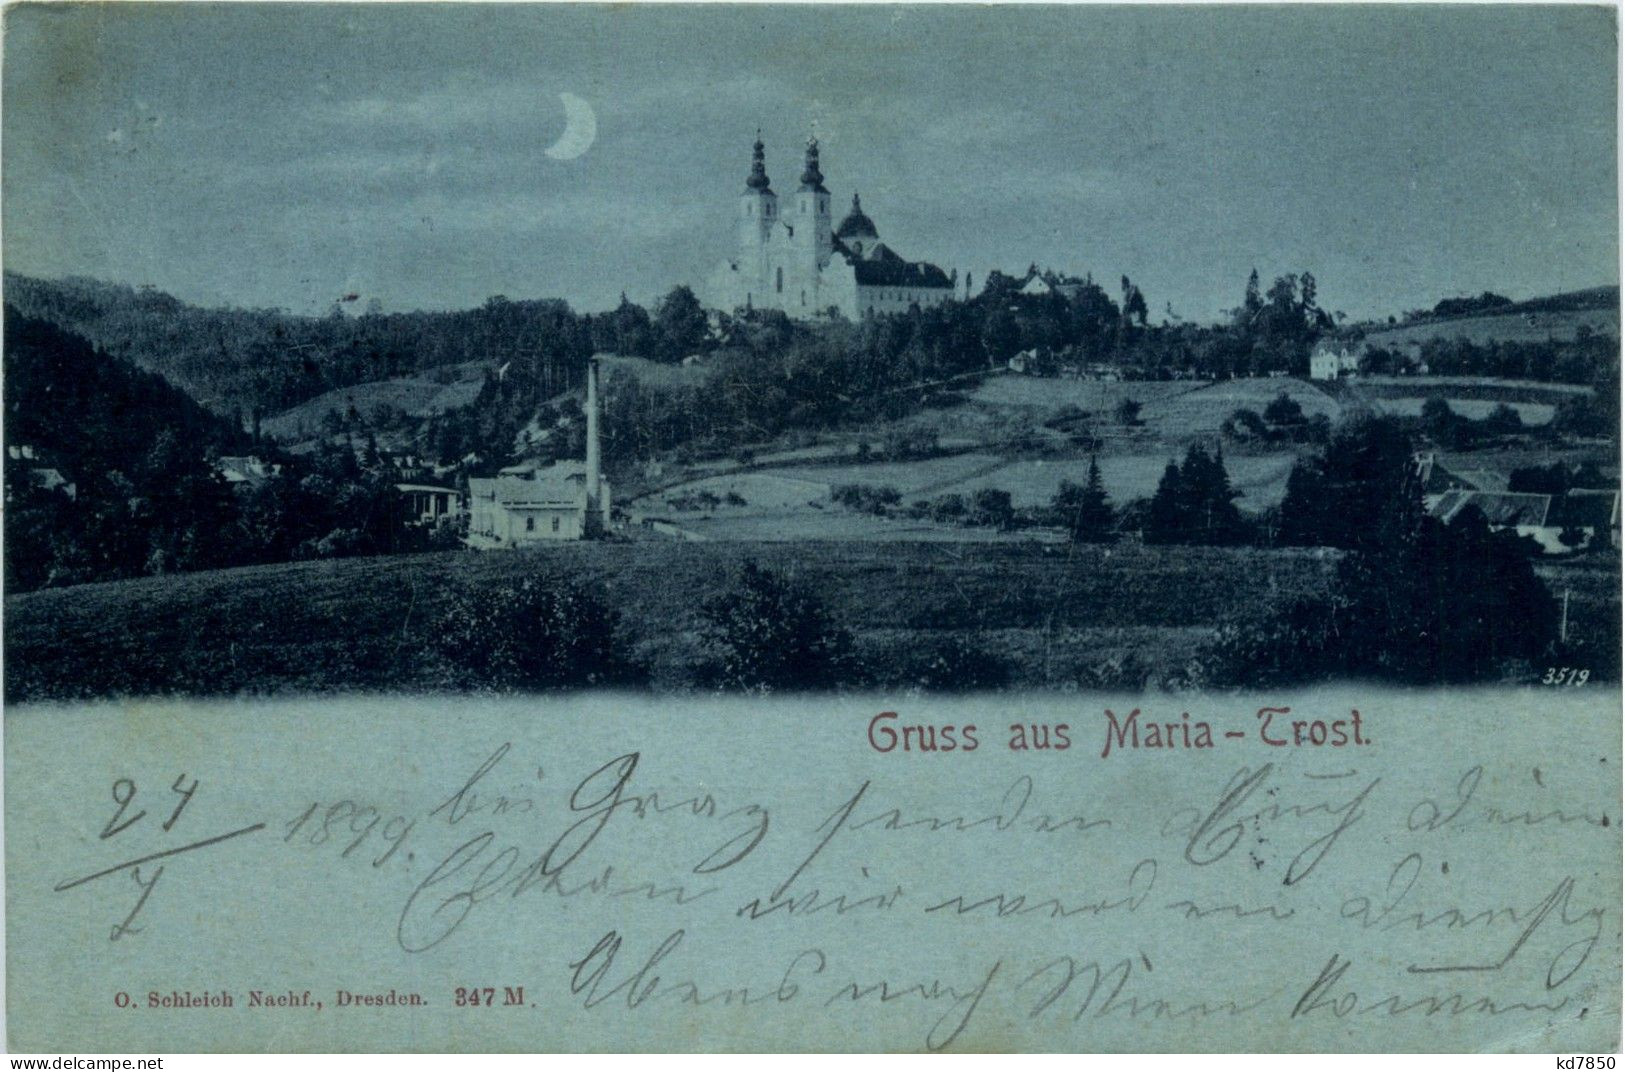 3519
Gruss aus Maria-Trost.
24/7 1899. bei Graz senden Euch Dein
wir werden Dienstg
Abens nach Wien komen.
O. Schleich Nachf., Dresden. 347 M.
www.delcampe.net
kd7850